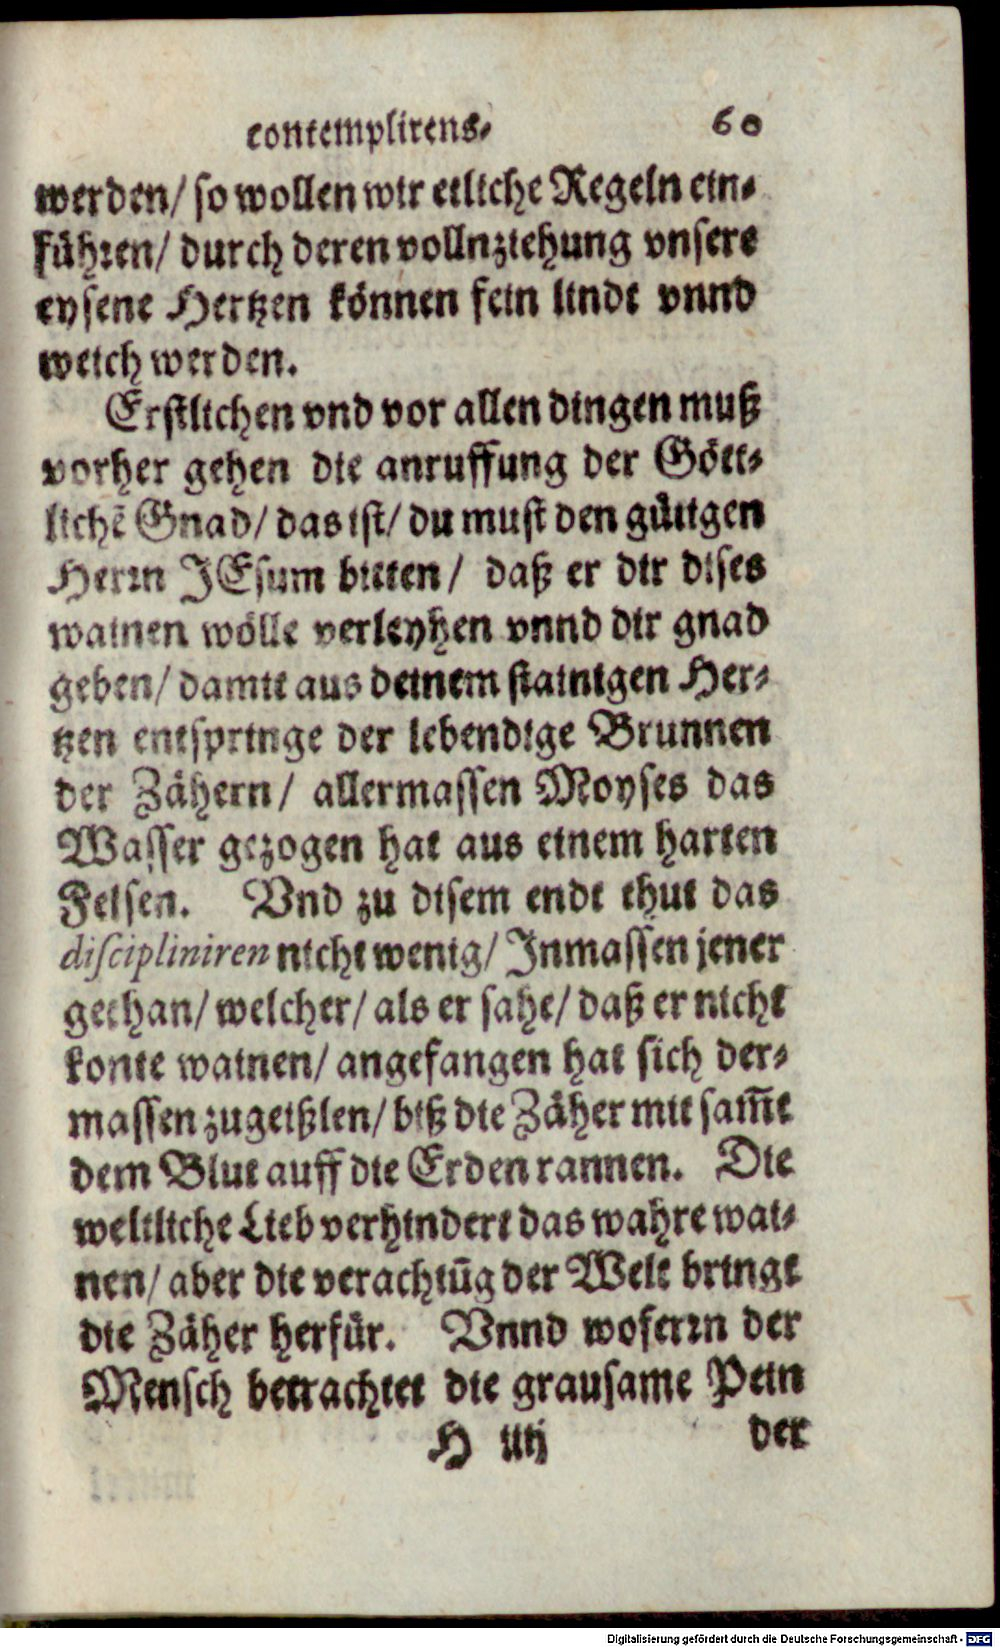 contemplirens. 60
werden/ so wollen wir etliche Regeln ein-
führen/ durch deren vollnziehung vnsere
eysene Hertzen können fein lindt vnnd
weich werden.
Erstlichen vnd vor allen dingen muß
vorher gehen die anruffung der Gött-
lichē Gnad/ das ist/ du must den gütigen
Herrn JEsum bitten/ daß er dir dises
wainen wölle verleyhen vnnd dir gnad
geben/ damit aus deinem stainigen Her-
tzen entspringe der lebendige Brunnen
der Zähern/ allermassen Moyses das
Wasser gezogen hat aus einem harten
Felsen. Vnd zu disem endt thut das
discipliniren nicht wenig/ Inmassen jener
gethan/ welcher/ als er sahe/ daß er nicht
konte wainen/ angefangen hat sich der-
massen zugeißlen/ biß die Zäher mit sam̄t
dem Blut auff die Erden rannen. Die
weltliche Lieb verhindert das wahre wai-
nen/ aber die verachtūg der Welt bringt
die Zäher herfür. Vnnd wofern der
Mensch betrachtet die grausame Pein
H iiij der
Digitalisierung gefördert durch die Deutsche Forschungsgemeinschaft - DFG